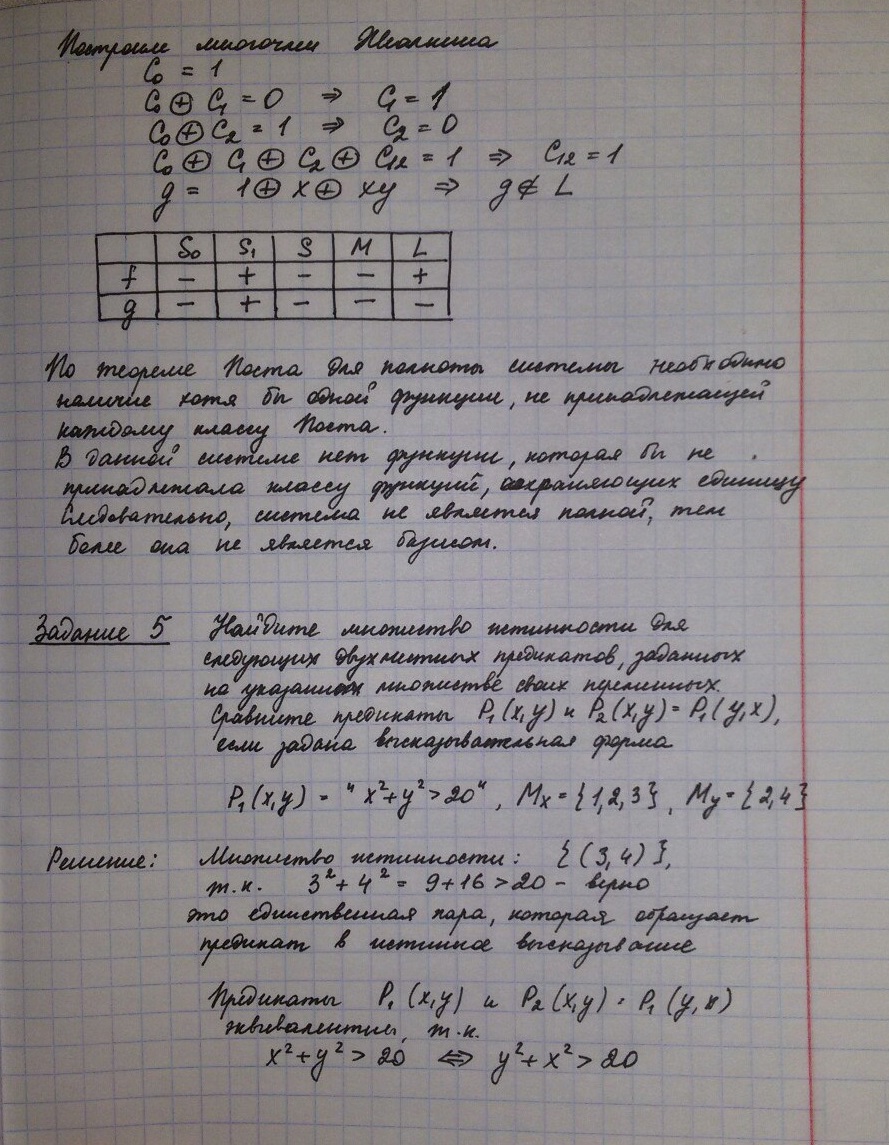 Построим многочлен Жегалкина
C₀ = 1
C₀ ⊕ C₁ = 0 ⇒ C₁ = 1
C₀ ⊕ C₂ = 1 ⇒ C₂ = 0
C₀ ⊕ C₁ ⊕ C₂ ⊕ C₁₂ = 1 ⇒ C₁₂ = 1
g = 1 ⊕ x ⊕ xy ⇒ g ∉ L
S₀ S₁ S M L
f − + − − +
g − + − − −
По теореме Поста для полноты системы необходимо
наличие хотя бы одной функции, не принадлежащей
каждому классу Поста.
В данной системе нет функции, которая бы не
принадлежала классу функций, сохраняющих единицу
Следовательно, система не является полной, тем
более она не является базисом.
Задание 5 Найдите множество истинности для
следующих двухместных предикатов, заданных
на указанном множестве своих переменных.
Сравните предикаты P₁(x,y) и P₂(x,y) = P₁(y,x),
если задана высказывательная форма
P₁(x,y) = "x²+y²>20", Mx = {1,2,3}, My = {2,4}
Решение: Множество истинности: {(3,4)},
т.к. 3² + 4² = 9+16 > 20 – верно
это единственная пара, которая обращает
предикат в истинное высказывание
Предикаты P₁(x,y) и P₂(x,y) = P₁(y,x)
эквивалентны, т.к.
x² + y² > 20 ⇔ y² + x² > 20